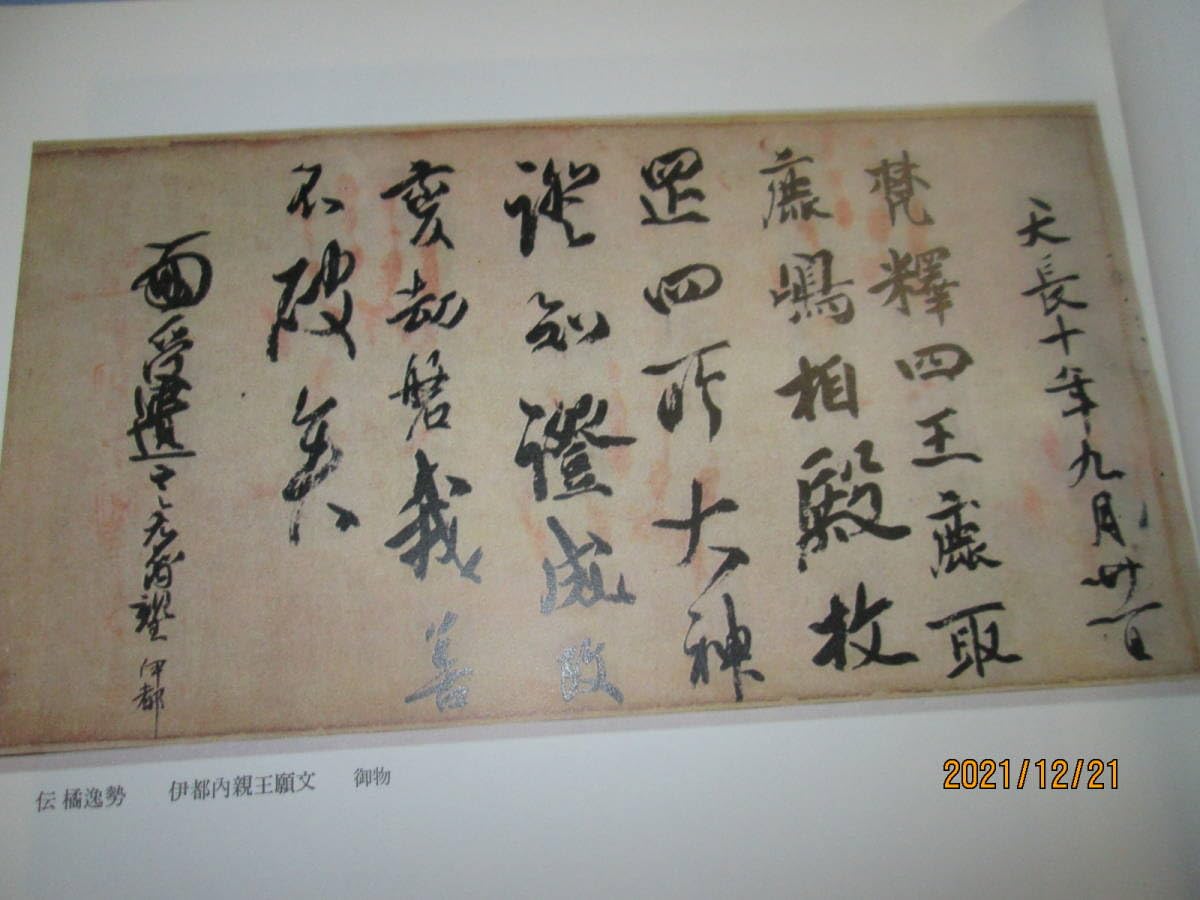 天長十年九月廿一日
梵釋四王鹿取
鹿嶋相殿枚
罡四所大神
證知證成改
變劫磐我善
不破矣
面受遺 伊都
伝 橘逸勢 伊都内親王願文 御物
2021/12/21